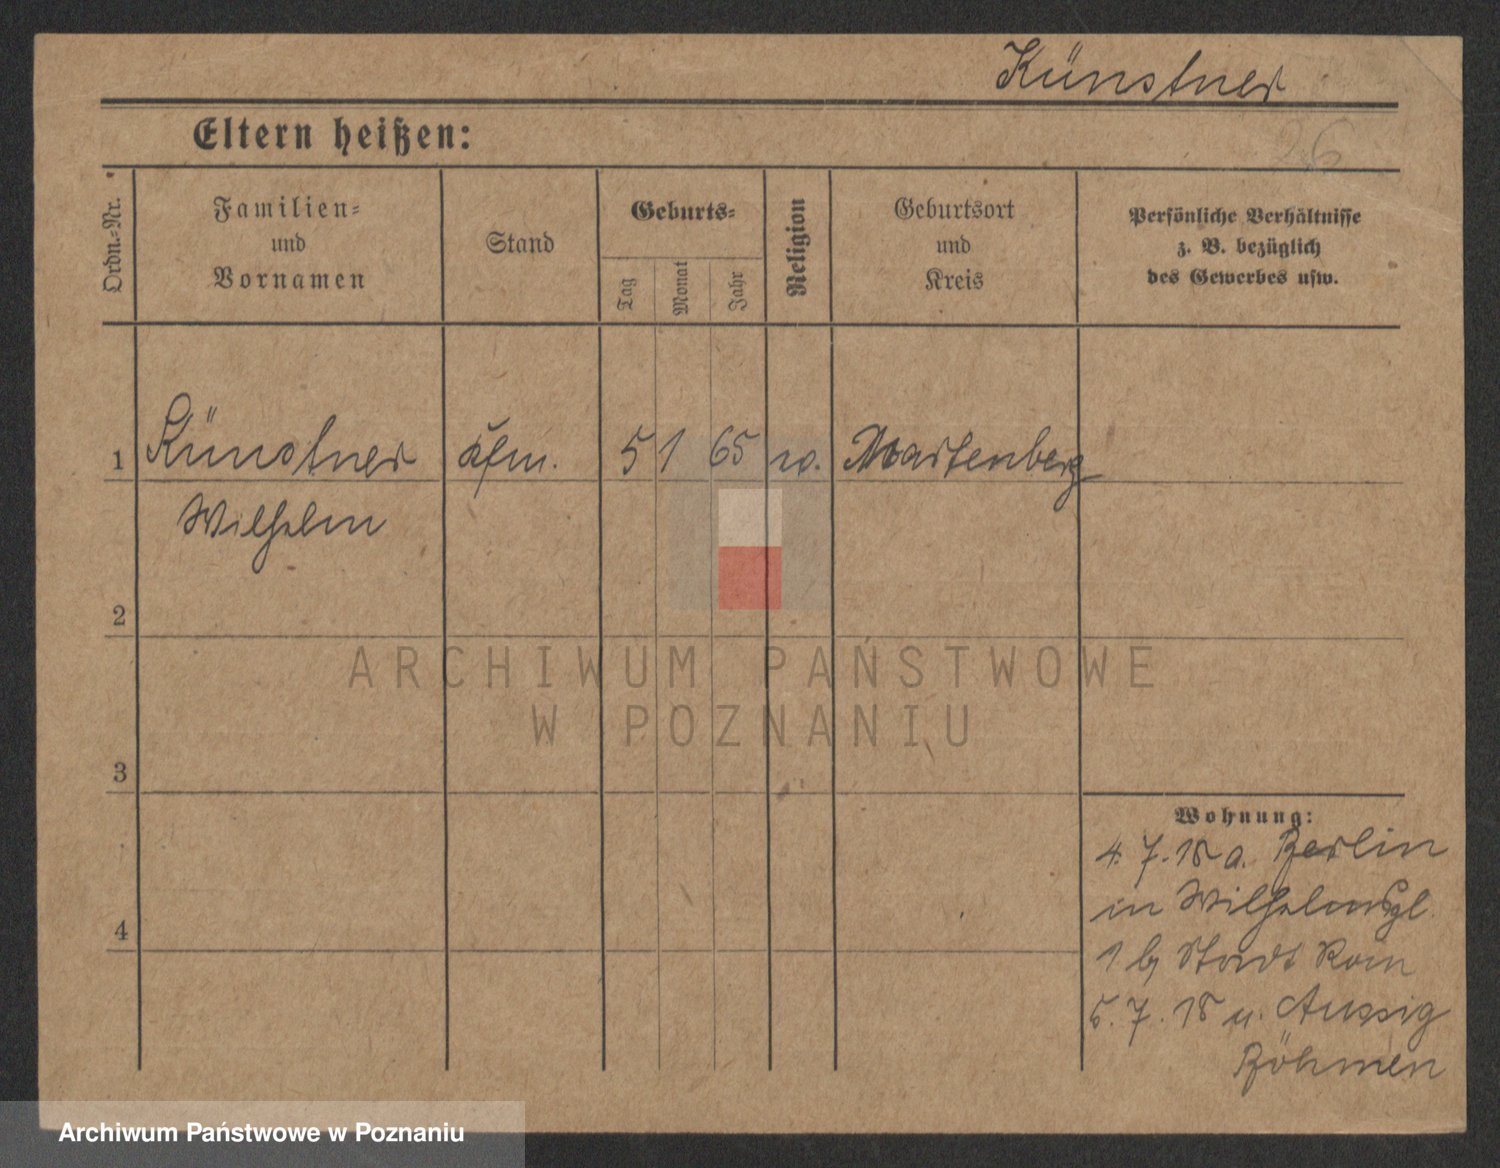 Künstner
26
Eltern heißen:
Ordn.-Nr.
Familien-
und
Vornamen
Stand
Geburts-
Tag
Monat
Jahr
Religion
Geburtsort
und
Kreis
Persönliche Verhältnisse
z. B. bezüglich
des Gewerbes usw.
1 Künstner Kfm. 5 1 65 Martenberg
Wilhelm
2
3
4
Wohnung:
4. 7. 18 a. Berlin
in Wilhelmspl.
1 b/ Stadt Rom
5. 7. 18 n. Aussig
Böhmen
ARCHIWUM PAŃSTWOWE
W POZNANIU
Archiwum Państwowe w Poznaniu